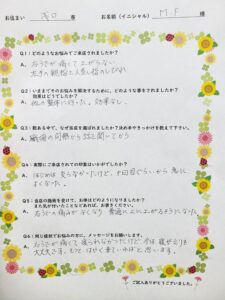 お住まい 浅口 市 お名前(イニシャル) M.F 様
Q1:どのようなお悩みでご来店されましたか?
A、右うでが痛くて上がらない
左手の親指と人差し指のしびれ
Q2:いままでそのお悩みを解決するために、どのようなことをされましたか?
効果はどうでしたか?
A、他の整体に行った。効果なし。
Q3:数ある中で、なぜ当店を選ばれましたか?決め手やきっかけを教えて下さい。
A、職場の同僚から話を聞いてから
Q4:実際にご来店されての印象はいかがでしたか?
A、はじめは変らなかったけど、4回目ぐらいから急に
よくなった。
Q5:当店の施術を受けて、お体はどのようになりましたか?
また気が付いたことなどあれば、お書きください。
A、右うでの痛みがなくなり普通に上に上がるようになった
Q6:同じ症状でお悩みの方に、メッセージをお願いします。
A、右うでが痛くて寝られなかったけど、今は寝がえりも
大丈夫です。もっとはやく来ればよかったと思います。
ご記入ありがとうございました。